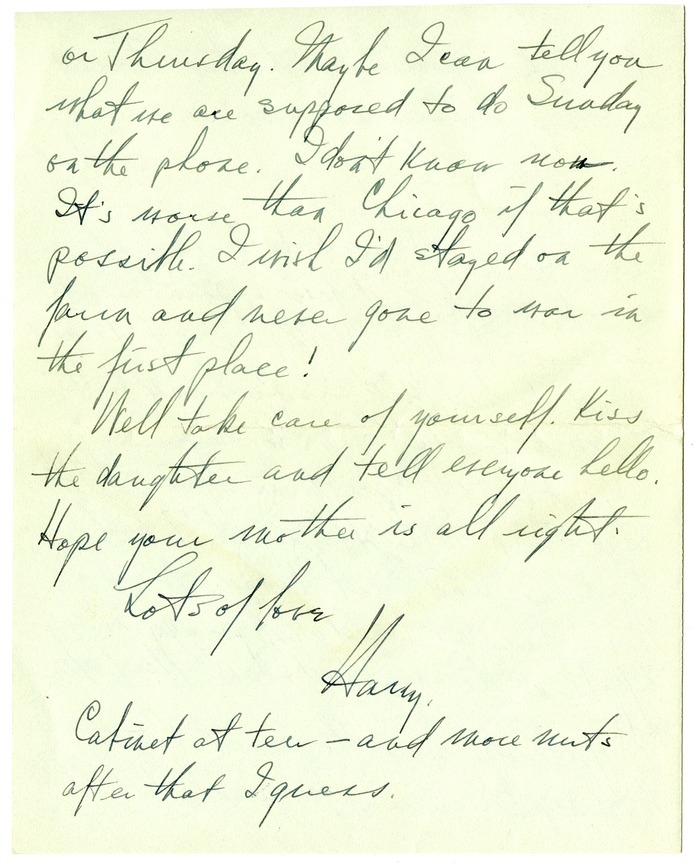 or Thursday. Maybe I can tell you
what we are supposed to do Sunday
on the phone. I don't know now.
It's worse than Chicago if that's
possible. I wish I'd stayed on the
farm and never gone to war in
the first place!
Well take care of yourself. Kiss
the daughter and tell everyone hello.
Hope your mother is all right.
Lots of love
Harry.
Cabinet at ten – and more nuts
after that I guess.